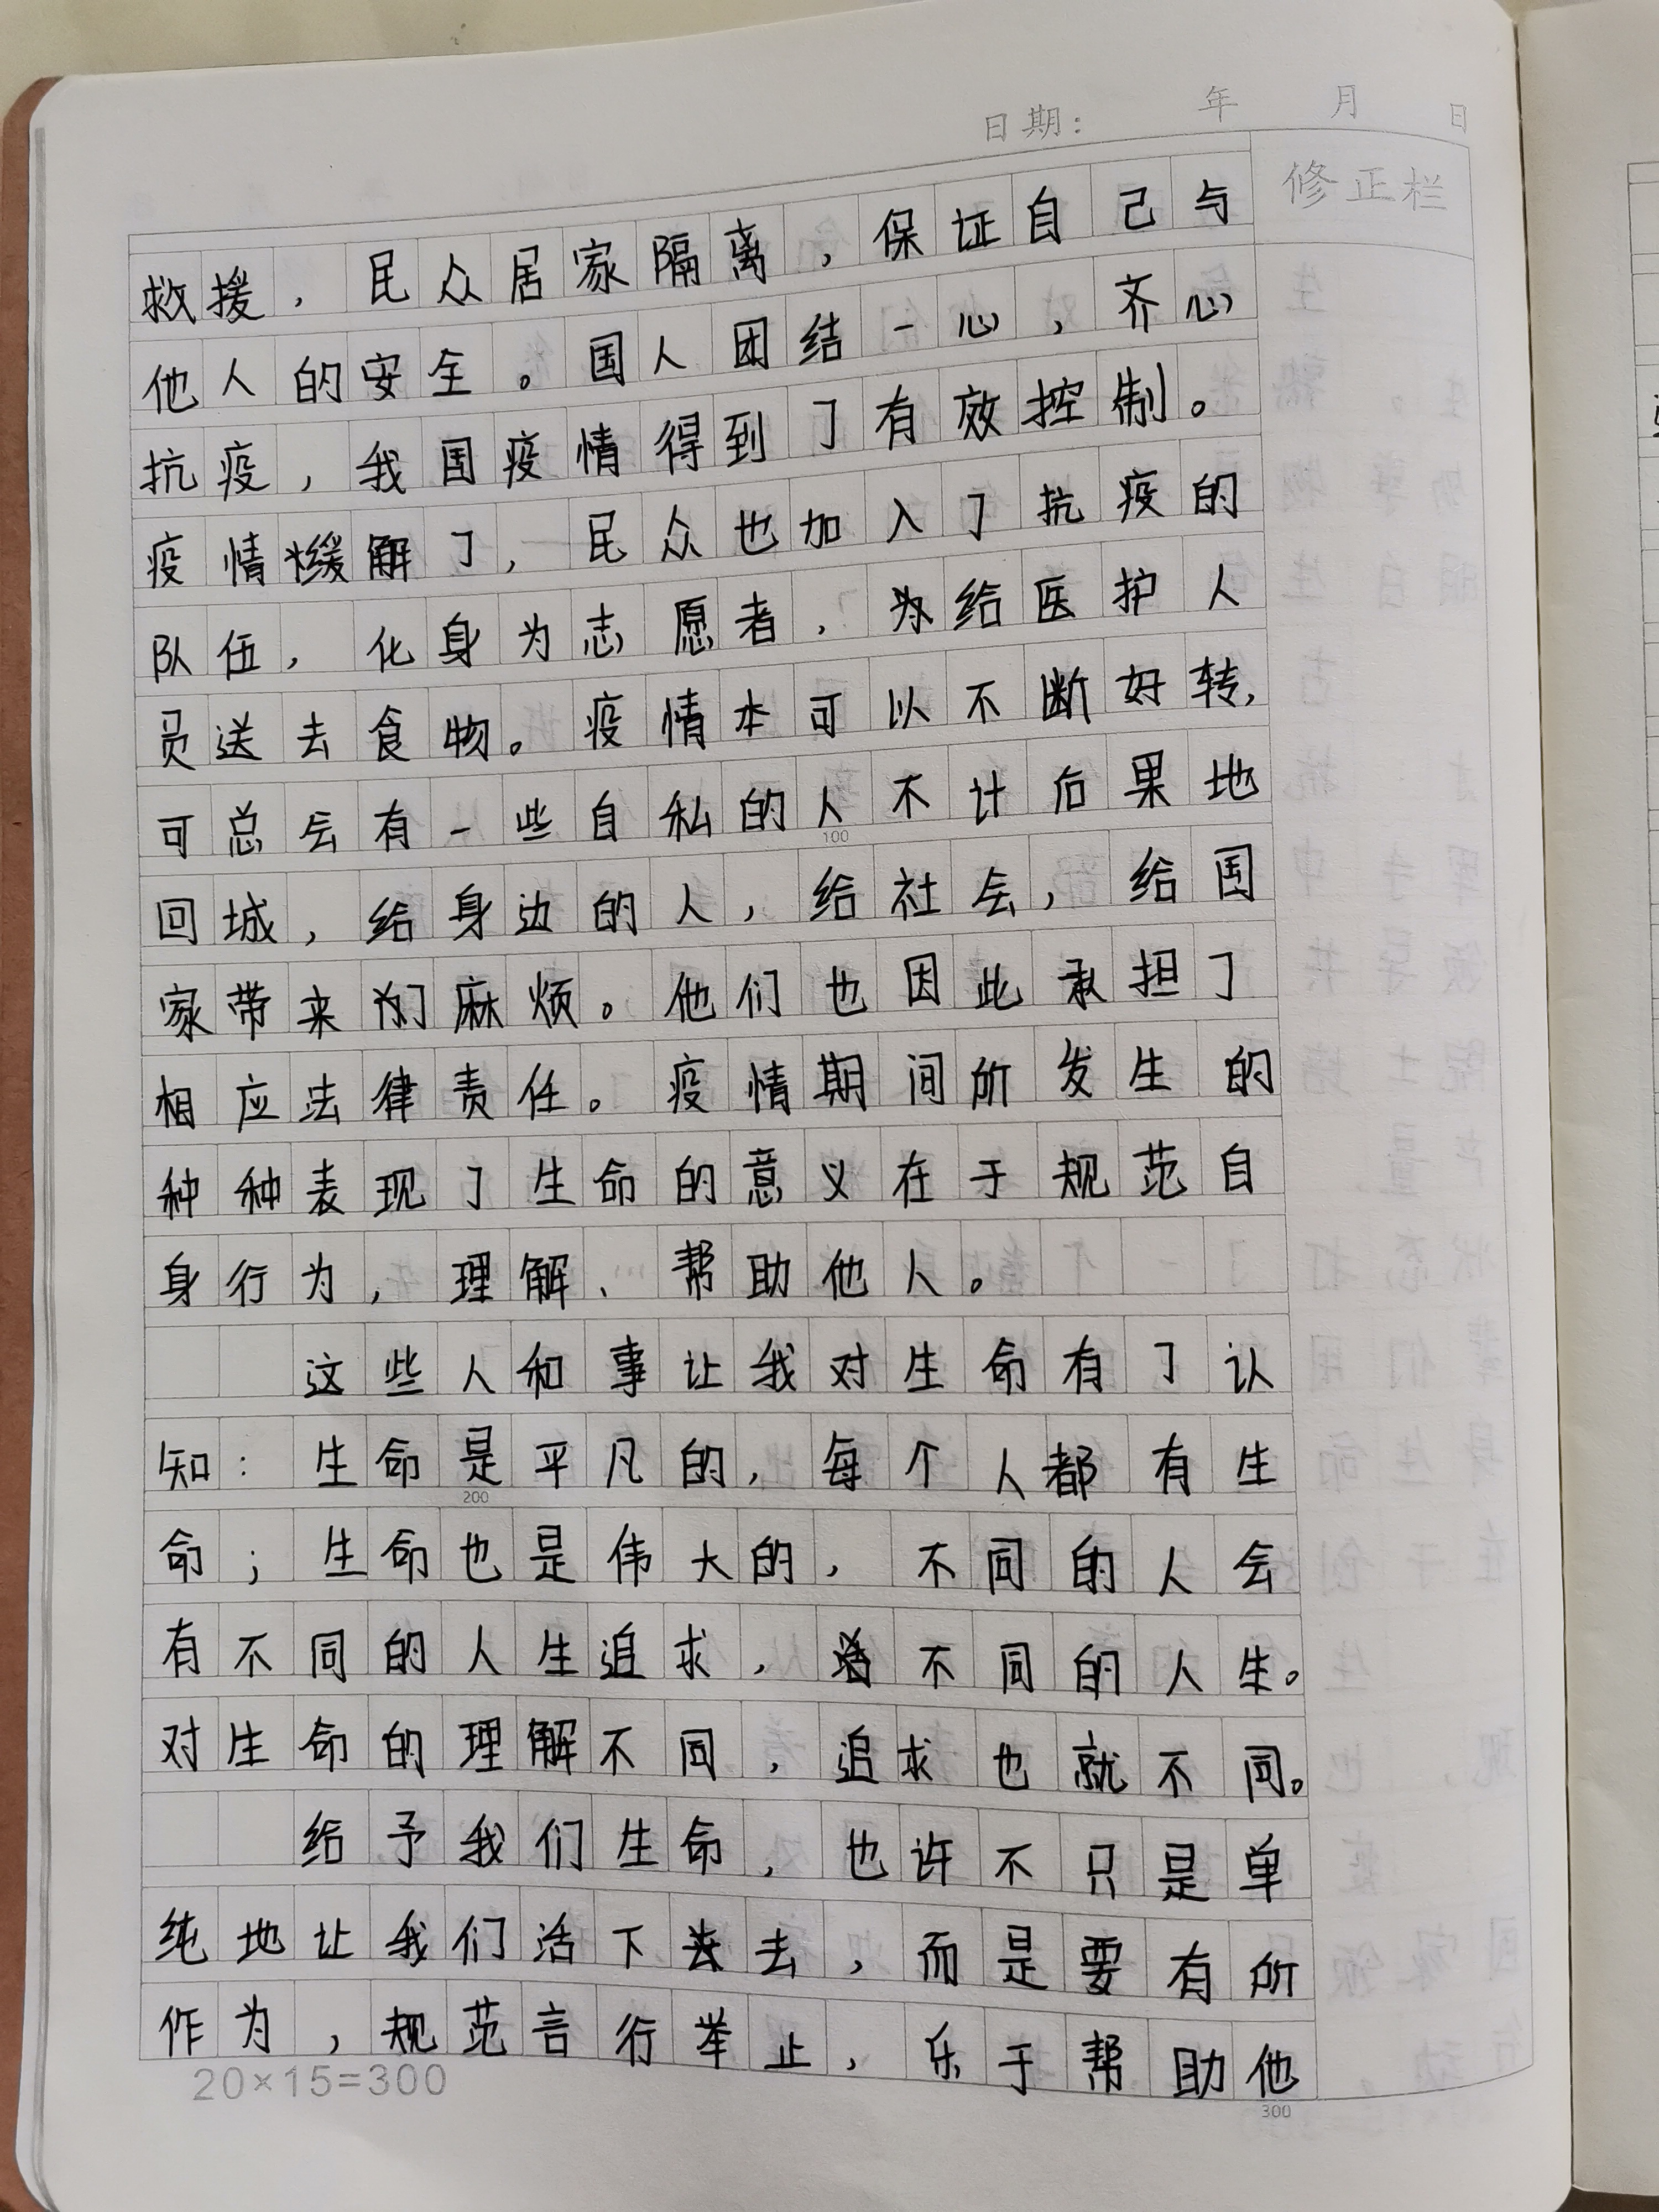 日期： 年 月 日
修正栏
救援，民众居家隔离，保证自己与
他人的安全。国人团结一心，齐心
抗疫，我国疫情得到了有效控制。
疫情缓解了，民众也加入了抗疫的
队伍，化身为志愿者，为给医护人
员送去食物。疫情本可以不断好转，
可总会有一些自私的人不计后果地
100
回城，给身边的人，给社会，给国
家带来麻烦。他们也因此承担了
相应法律责任。疫情期间所发生的
种种表现了生命的意义在于规范自
身行为，理解、帮助他人。
这些人和事让我对生命有了认
知：生命是平凡的，每个人都有生
200
命；生命也是伟大的，不同的人会
有不同的人生追求，不同的人生。
对生命的理解不同，追求也就不同。
给予我们生命，也许不只是单
纯地让我们活下去，而是要有所
作为，规范言行举止，乐于帮助他
20×15=300
300